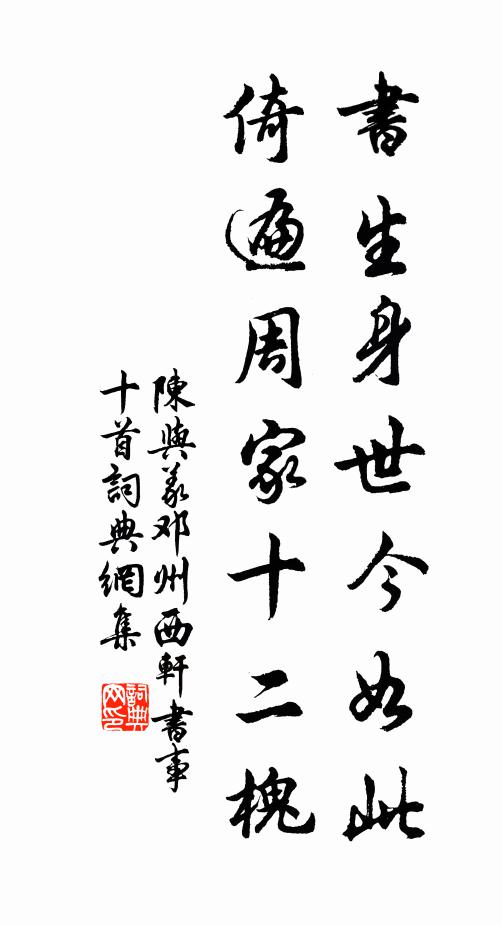 書生身世今如此
倚遍周家十二槐
陳與義邓州西軒書事
十首詞典網集
詞典网印